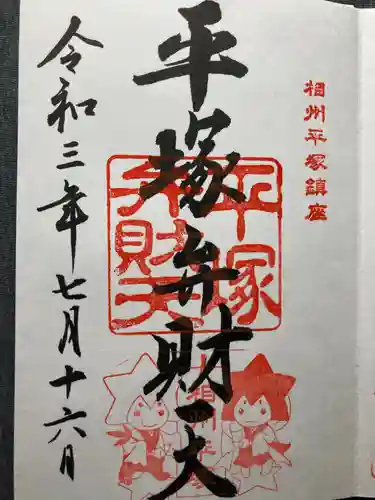 相州平塚鎮座
平塚弁財天
平塚
弁財天
相州平塚
令和三年七月十六日